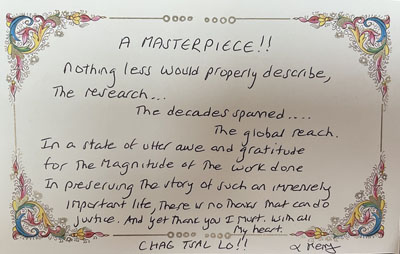 A MASTERPIECE!!
Nothing less would properly describe,
The research...
The decades spanned....
The global reach.
In a state of utter awe and gratitude
for the Magnitude of the work done
In preserving the story of such an immensely
important life, There is no Thanks that can do
justice. And yet Thank you I must. With all
My heart.
CHAG TSAL LO!!